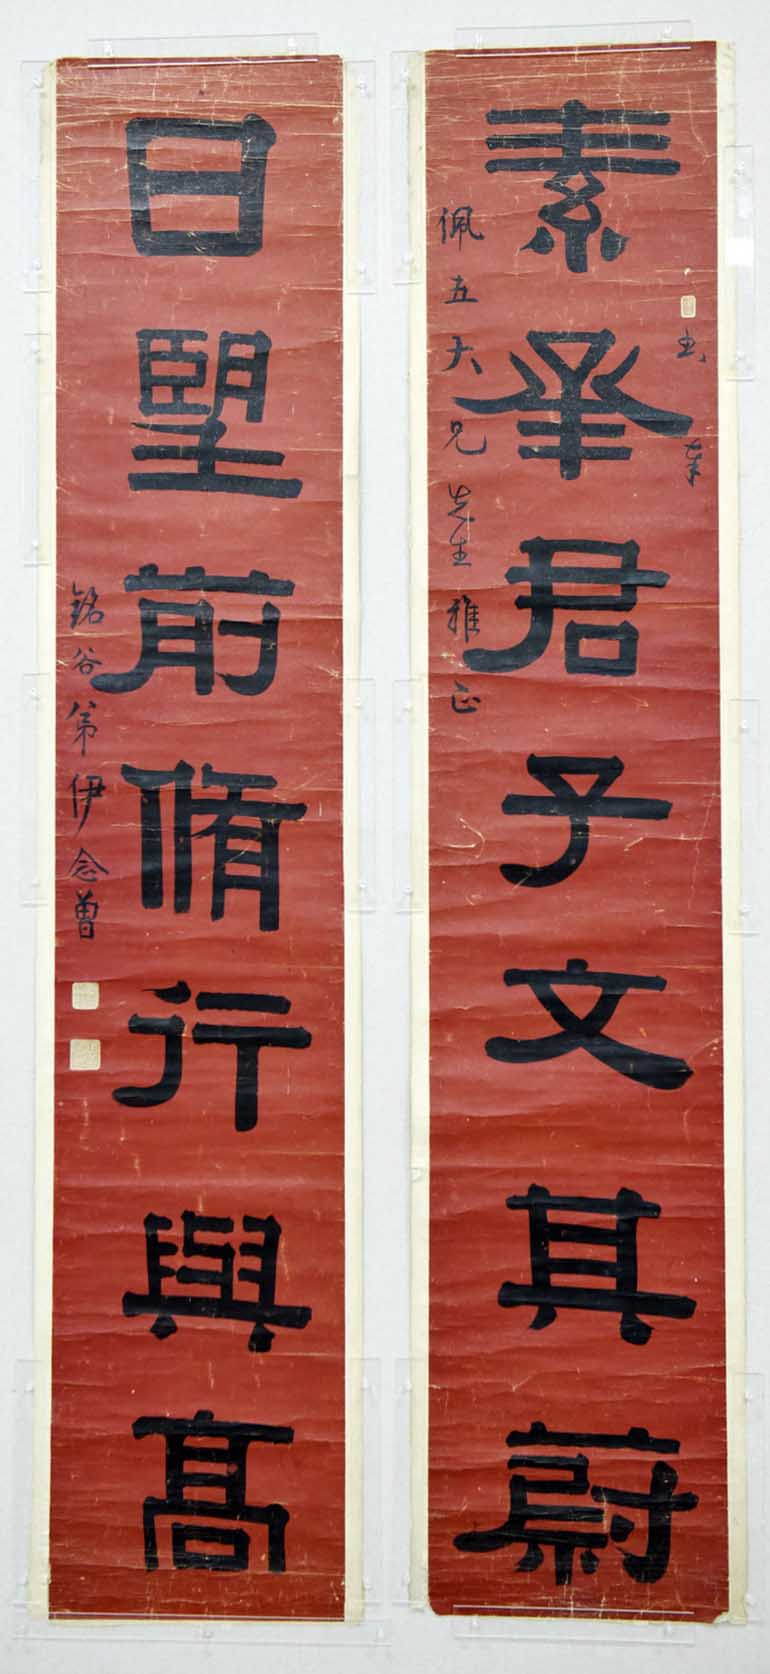 素承君子文其蔚
書奉
佩五大兄先生雅正
日望前脩行與高
銘谷弟伊念曾